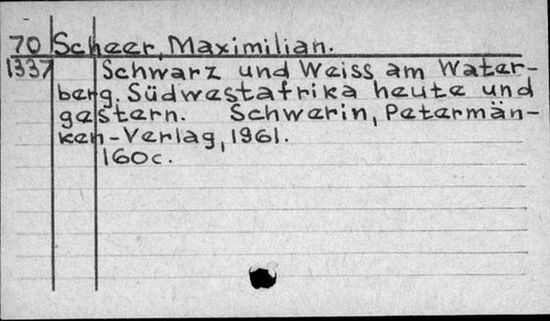 70 Scheer, Maximilian.
1337 Schwarz und Weiss am Water-
berg. Südwestafrika heute und
gestern. Schwerin, Petermän-
ken-Verlag, 1961.
160c.